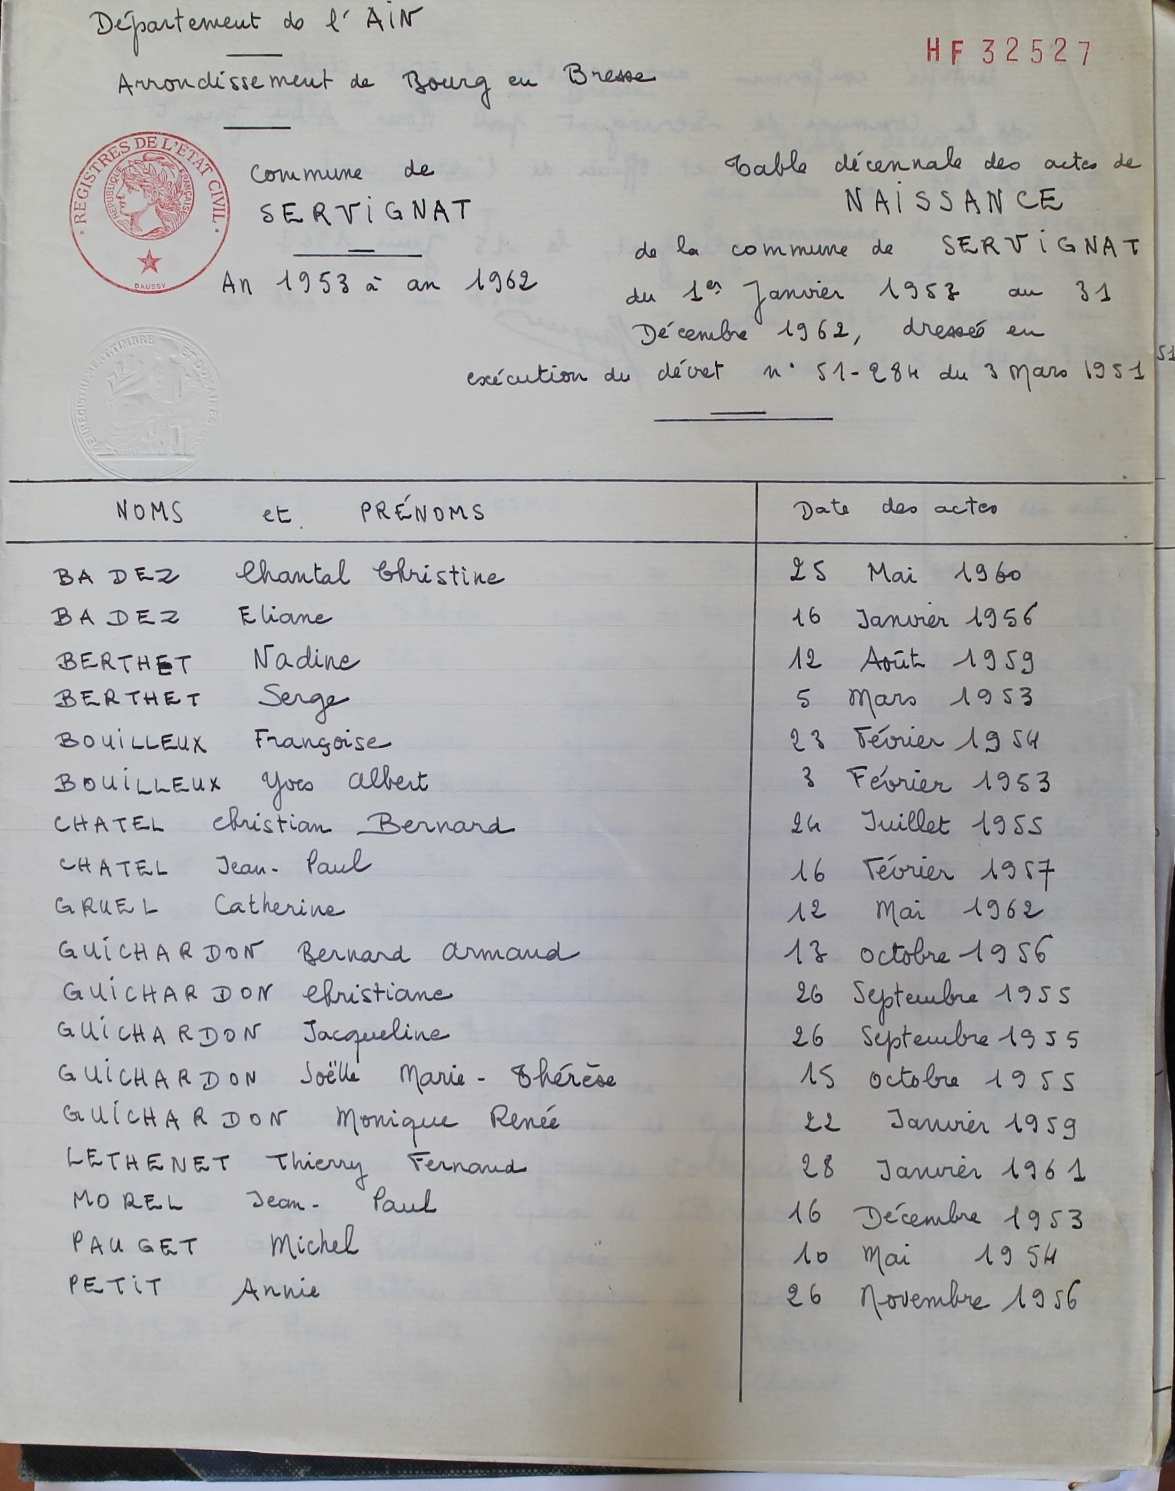 Département de l'AIN
HF 32527
Arrondissement de Bourg en Bresse
REGISTRES DE L'ETAT CIVIL
REPUBLIQUE FRANÇAISE
DAUSSY
Commune de
SERVIGNAT
An 1953 à an 1962
Table décennale des actes de
NAISSANCE
de la commune de SERVIGNAT
du 1er Janvier 1953 au 31
Décembre 1962, dressée en
exécution du décret n° 51-284 du 3 Mars 1951
51
NOMS et PRÉNOMS Date des actes
BADEZ Chantal Christine 25 Mai 1960
BADEZ Eliane 16 Janvier 1956
BERTHET Nadine 12 Août 1959
BERTHET Serge 5 Mars 1953
BOUILLEUX Françoise 23 Février 1954
BOUILLEUX Yves Albert 3 Février 1953
CHATEL Christian Bernard 24 Juillet 1955
CHATEL Jean-Paul 16 Février 1957
GRUEL Catherine 12 Mai 1962
GUICHARDON Bernard Armand 13 Octobre 1956
GUICHARDON Christiane 26 Septembre 1955
GUICHARDON Jacqueline 26 Septembre 1955
GUICHARDON Joëlle Marie-Thérèse 15 Octobre 1955
GUICHARDON Monique Renée 22 Janvier 1959
LETHENET Thierry Fernand 28 Janvier 1961
MOREL Jean-Paul 16 Décembre 1953
PAUGET Michel 10 Mai 1954
PETIT Annie 26 Novembre 1956